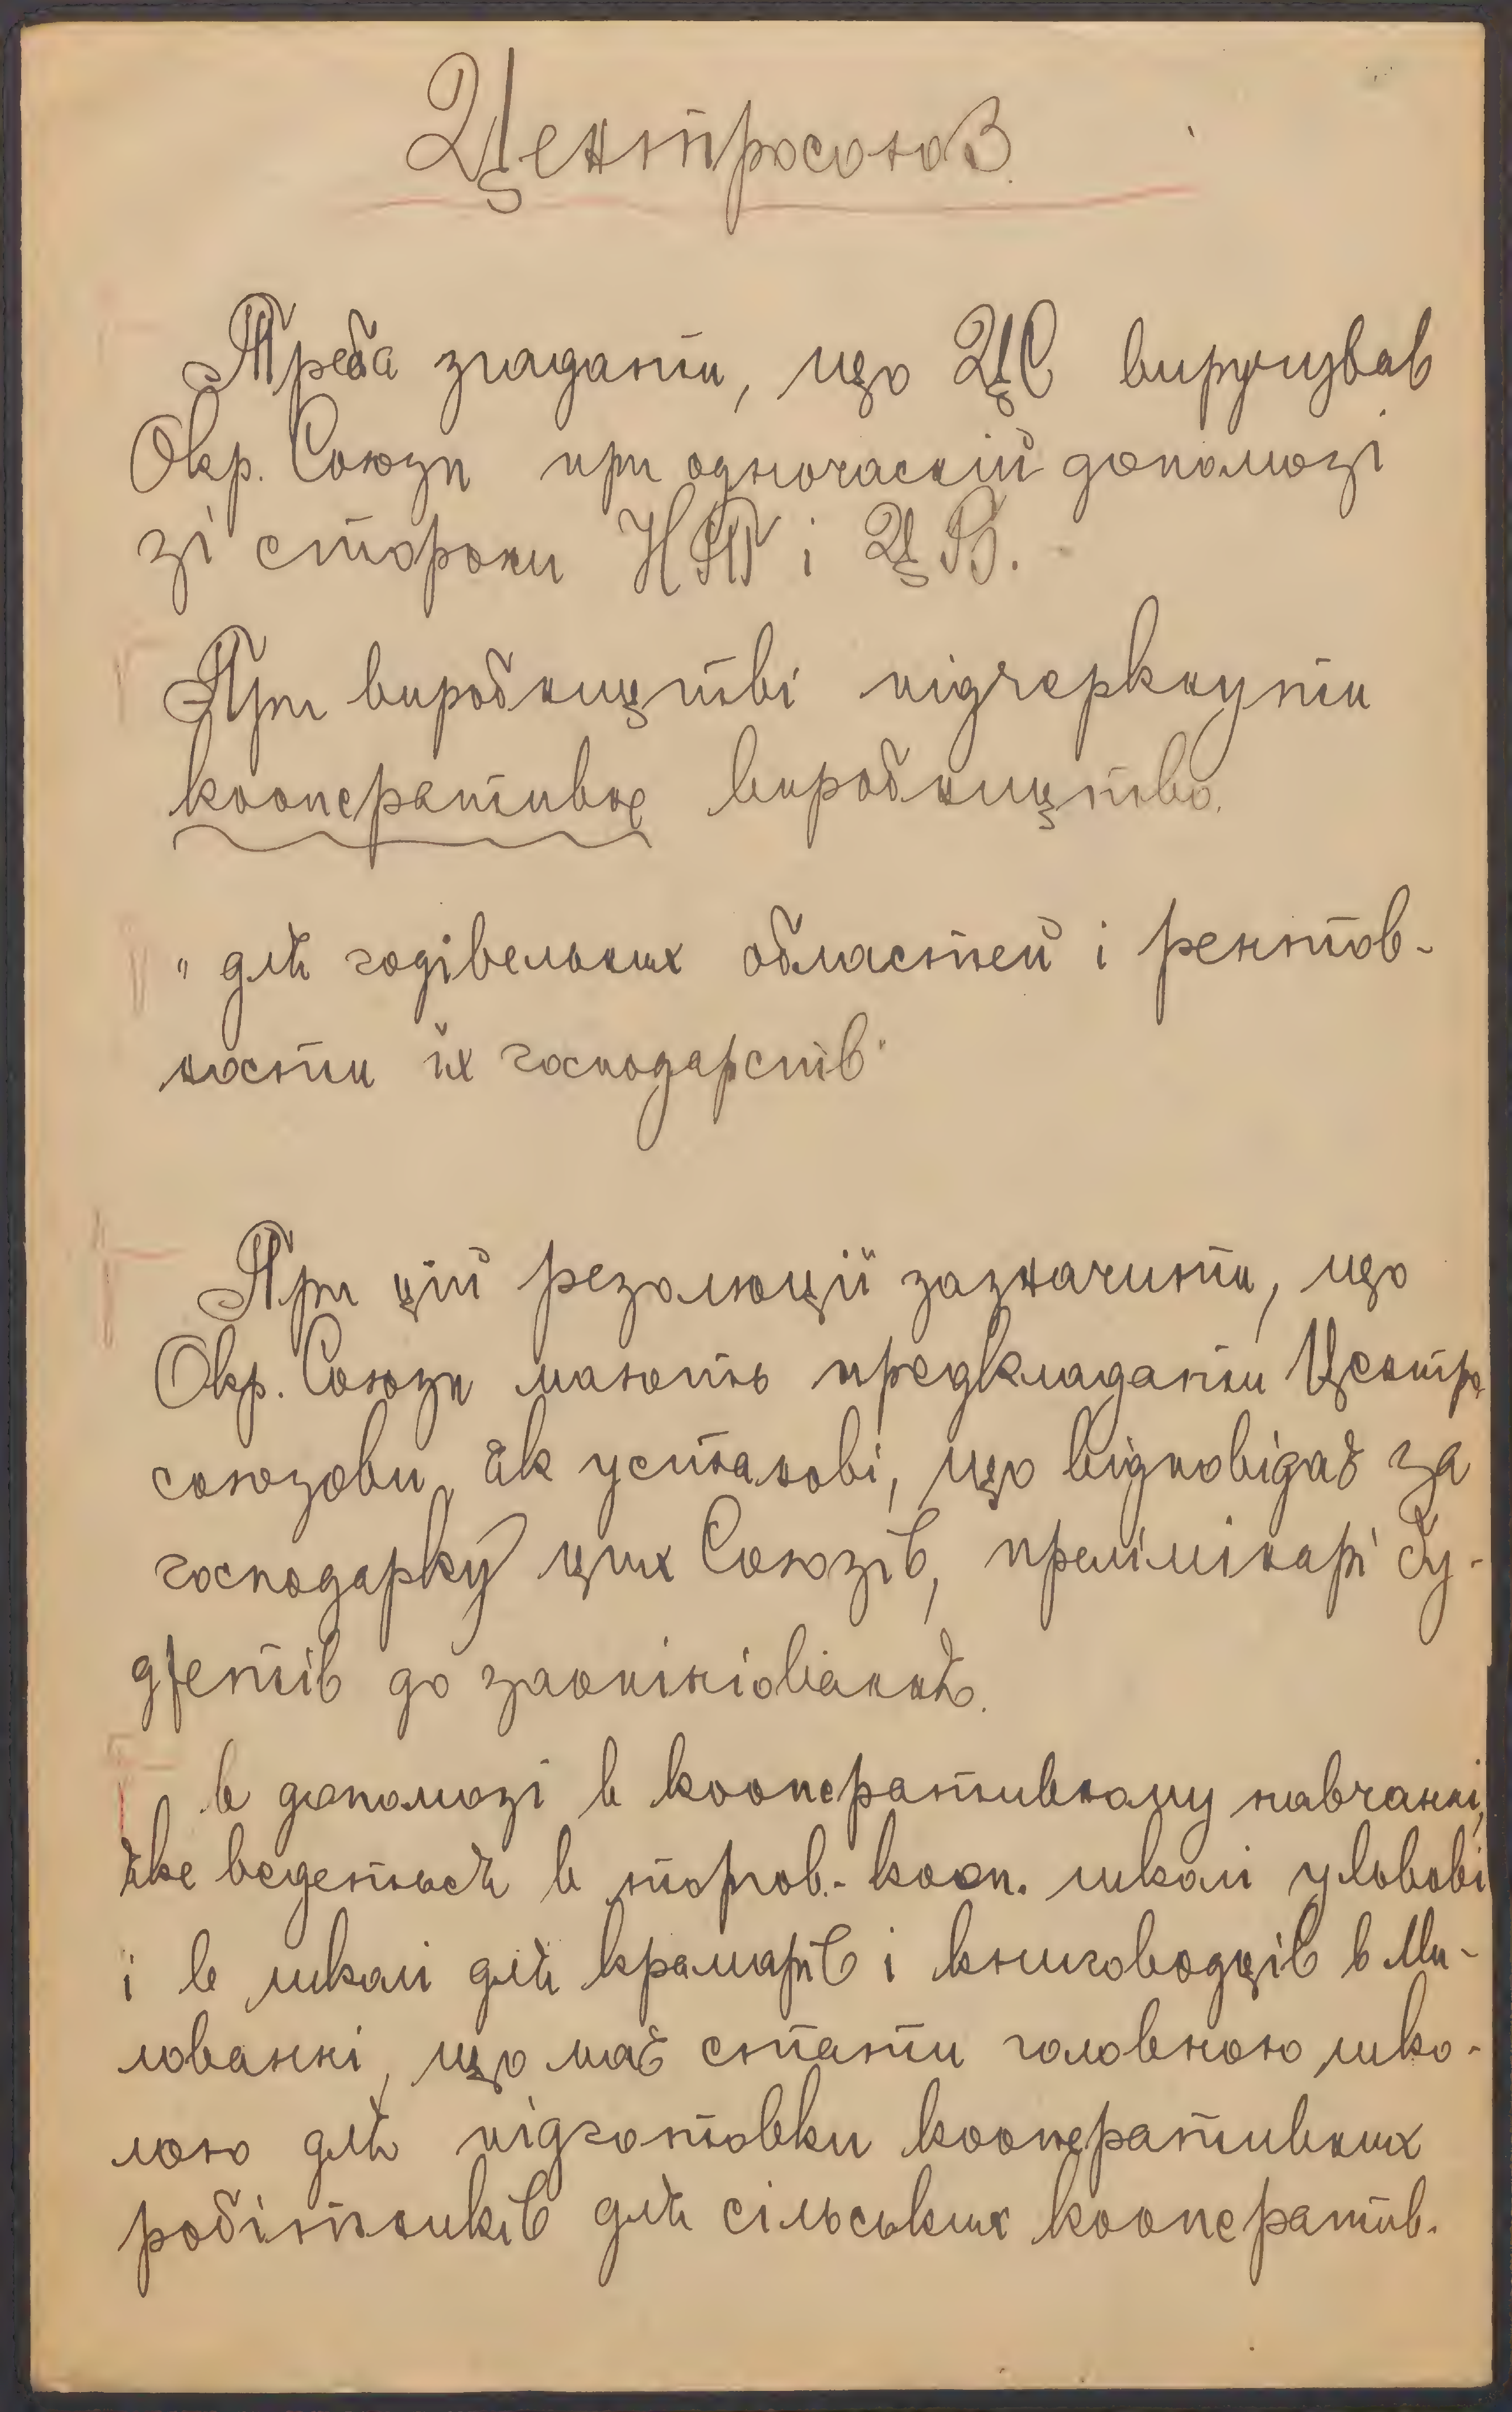 Центросоюз.
Треба згадати, що ЦС виручував
Окр. Союзи при одночасній допомозі
зі сторони НТ і ЦБ.
При виробництві підчеркнути
кооперативне виробництво.
"для годівельних областей і рентов-
ности їх господарств"
При цій резолюції зазначити, що
Окр. Союзи мають предкладати Центро
союзови, як установі, що відповідає за
господарку цих Союзів, прелімінарі бу-
джетів до заопініовання.
в допомозі в кооперативному навчанні,
яке ведеться в торгов.-кооп. школі у Львові
і в школі для крамарів і книговодців в Ми-
лованні, що має стати головною шко-
лою для підготовки кооперативних
робітників для сільських кооператив.